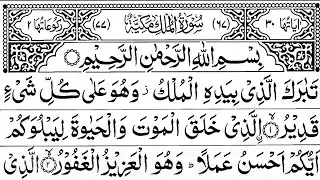 اٰيَاتُهَا ٣٠ (٦٧) سُوْرَةُ الْمُلْكِ مَكِّيَّةٌ (٧٧) رُكُوْعَاتُهَا ٢
بِسْمِ اللهِ الرَّحْمٰنِ الرَّحِيْمِ
تَبٰرَكَ الَّذِىْ بِيَدِهِ الْمُلْكُ ز وَهُوَ عَلٰى كُلِّ شَىْءٍ
قَدِيْرُۨ ۙ۝١ الَّذِىْ خَلَقَ الْمَوْتَ وَالْحَيٰوةَ لِيَبْلُوَكُمْ
اَيُّكُمْ اَحْسَنُ عَمَلًا ؕ وَهُوَ الْعَزِيْزُ الْغَفُوْرُ ۙ۝٢ الَّذِىْ